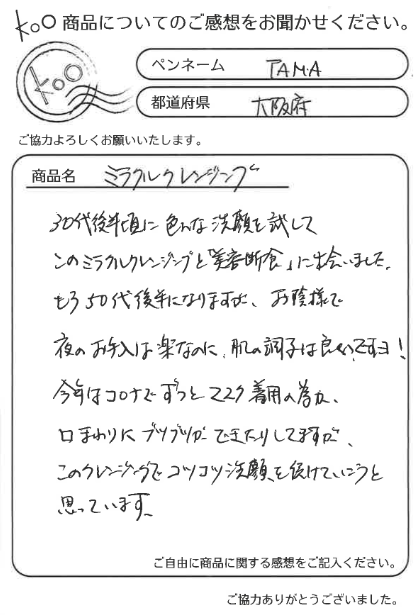 KOO 商品についてのご感想をお聞かせください。
KOO
ペンネーム TAMA
都道府県 大阪府
ご協力よろしくお願いいたします。
商品名 ミラクルクレンジング
30代後半頃に色んな洗顔を試して
このミラクルクレンジングと「美容断食」に出会いました。
もう50代後半になりますが、お陰様で
夜のお手入は楽なのに、肌の調子は良いですヨ!
今年はコロナでずっとマスク着用の為か、
口まわりにブツブツができたりしてますが、
このクレンジングでコツコツ洗顔を続けていこうと
思っています。
ご自由に商品に関する感想をご記入ください。
ご協力ありがとうございました。